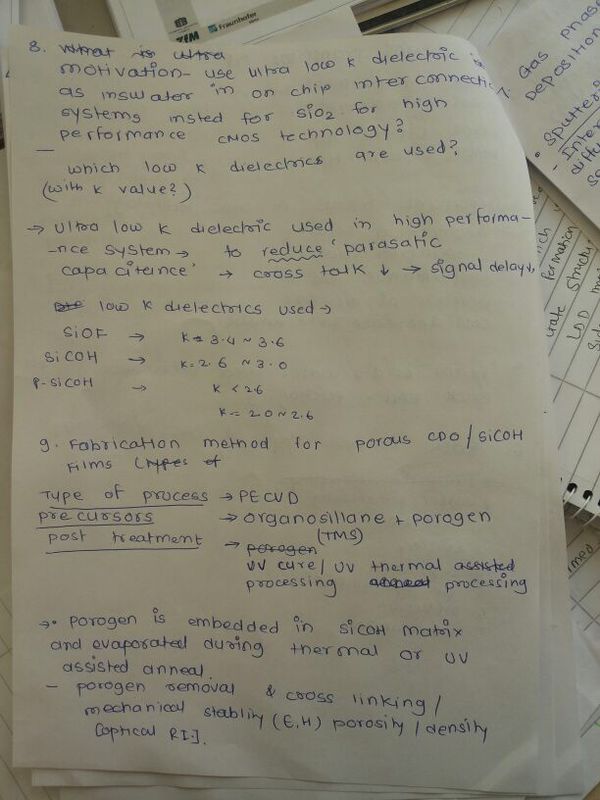 Fraunhofer
8. What is ultra
motivation- use ultra low k dielectric
as insulator in on chip inter connectic
systems insted for SiO2 for high
performance CMOS technology?
— which low k dielectrics are used?
(with k value?)
→ Ultra low k dielectric used in high performa-
-nce system → to reduce 'parasatic
capaciteince' → cross talk ↓ → signal delay↓
low k dielectrics used →
SiOF → K= 3.4 ~ 3.6
SiCOH → K= 2.6 ~ 3.0
P-SiCOH → K < 2.6
K= 2.0 ~ 2.6
9. Fabrication method for porous CDO / SiCOH
Films (types of
Type of process → PECVD
precursors → organosillane + porogen
(TMS)
post treatment → porogen
UV cure / UV thermal assisted
processing anneal processing
→• porogen is embedded in SiCOH matrix
and evaporated during thermal or UV
assisted anneal.
- porogen removal & cross linking /
mechanical stablity (E,H) porosity / density
[optical RI].
Gas phase
Deposition
• Sputter
- Inter
formation
LDD